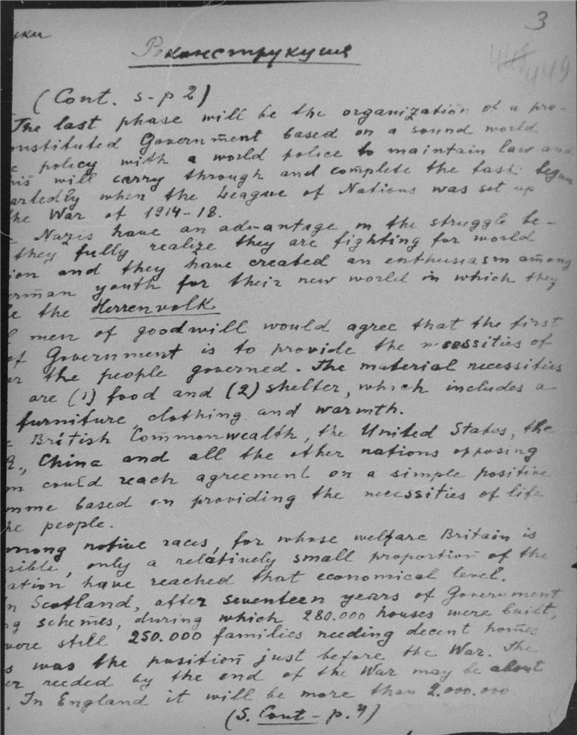 3
449
Реконструкция
(Cont. s-p 2)
The last phase will be the organization of a pro-
onstituted Government based on a sound world
policy with a world police to maintain law and
will carry through and complete the task began
artedly when the League of Nations was set up
he War of 1914-18.
Nazis have an advantage in the struggle be-
they fully realize they are fighting for world
ion and they have created an enthusiasm among
erman youth for their new world in which they
e the Herrenvolk
l men of goodwill would agree that the first
of Government is to provide the necessities of
the people governed. The material necessities
are (1) food and (2) shelter, which includes a
furniture, clothing and warmth.
British Commonwealth, the United States, the
China and all the other nations opposing
m could reach agreement on a simple positive
mme based on providing the necessities of life
he people.
mong native races, for whose welfare Britain is
sible, only a relatively small proportion of the
ation have reached that economical level.
n Scotland, after seventeen years of Government
g schemes, during which 280.000 houses were built,
were still 250.000 families needing decent homes
s was the position just before the War. The
er needed by the end of the War may be about
. In England it will be more than 2.000.000.
(S. Cont - p. 4)